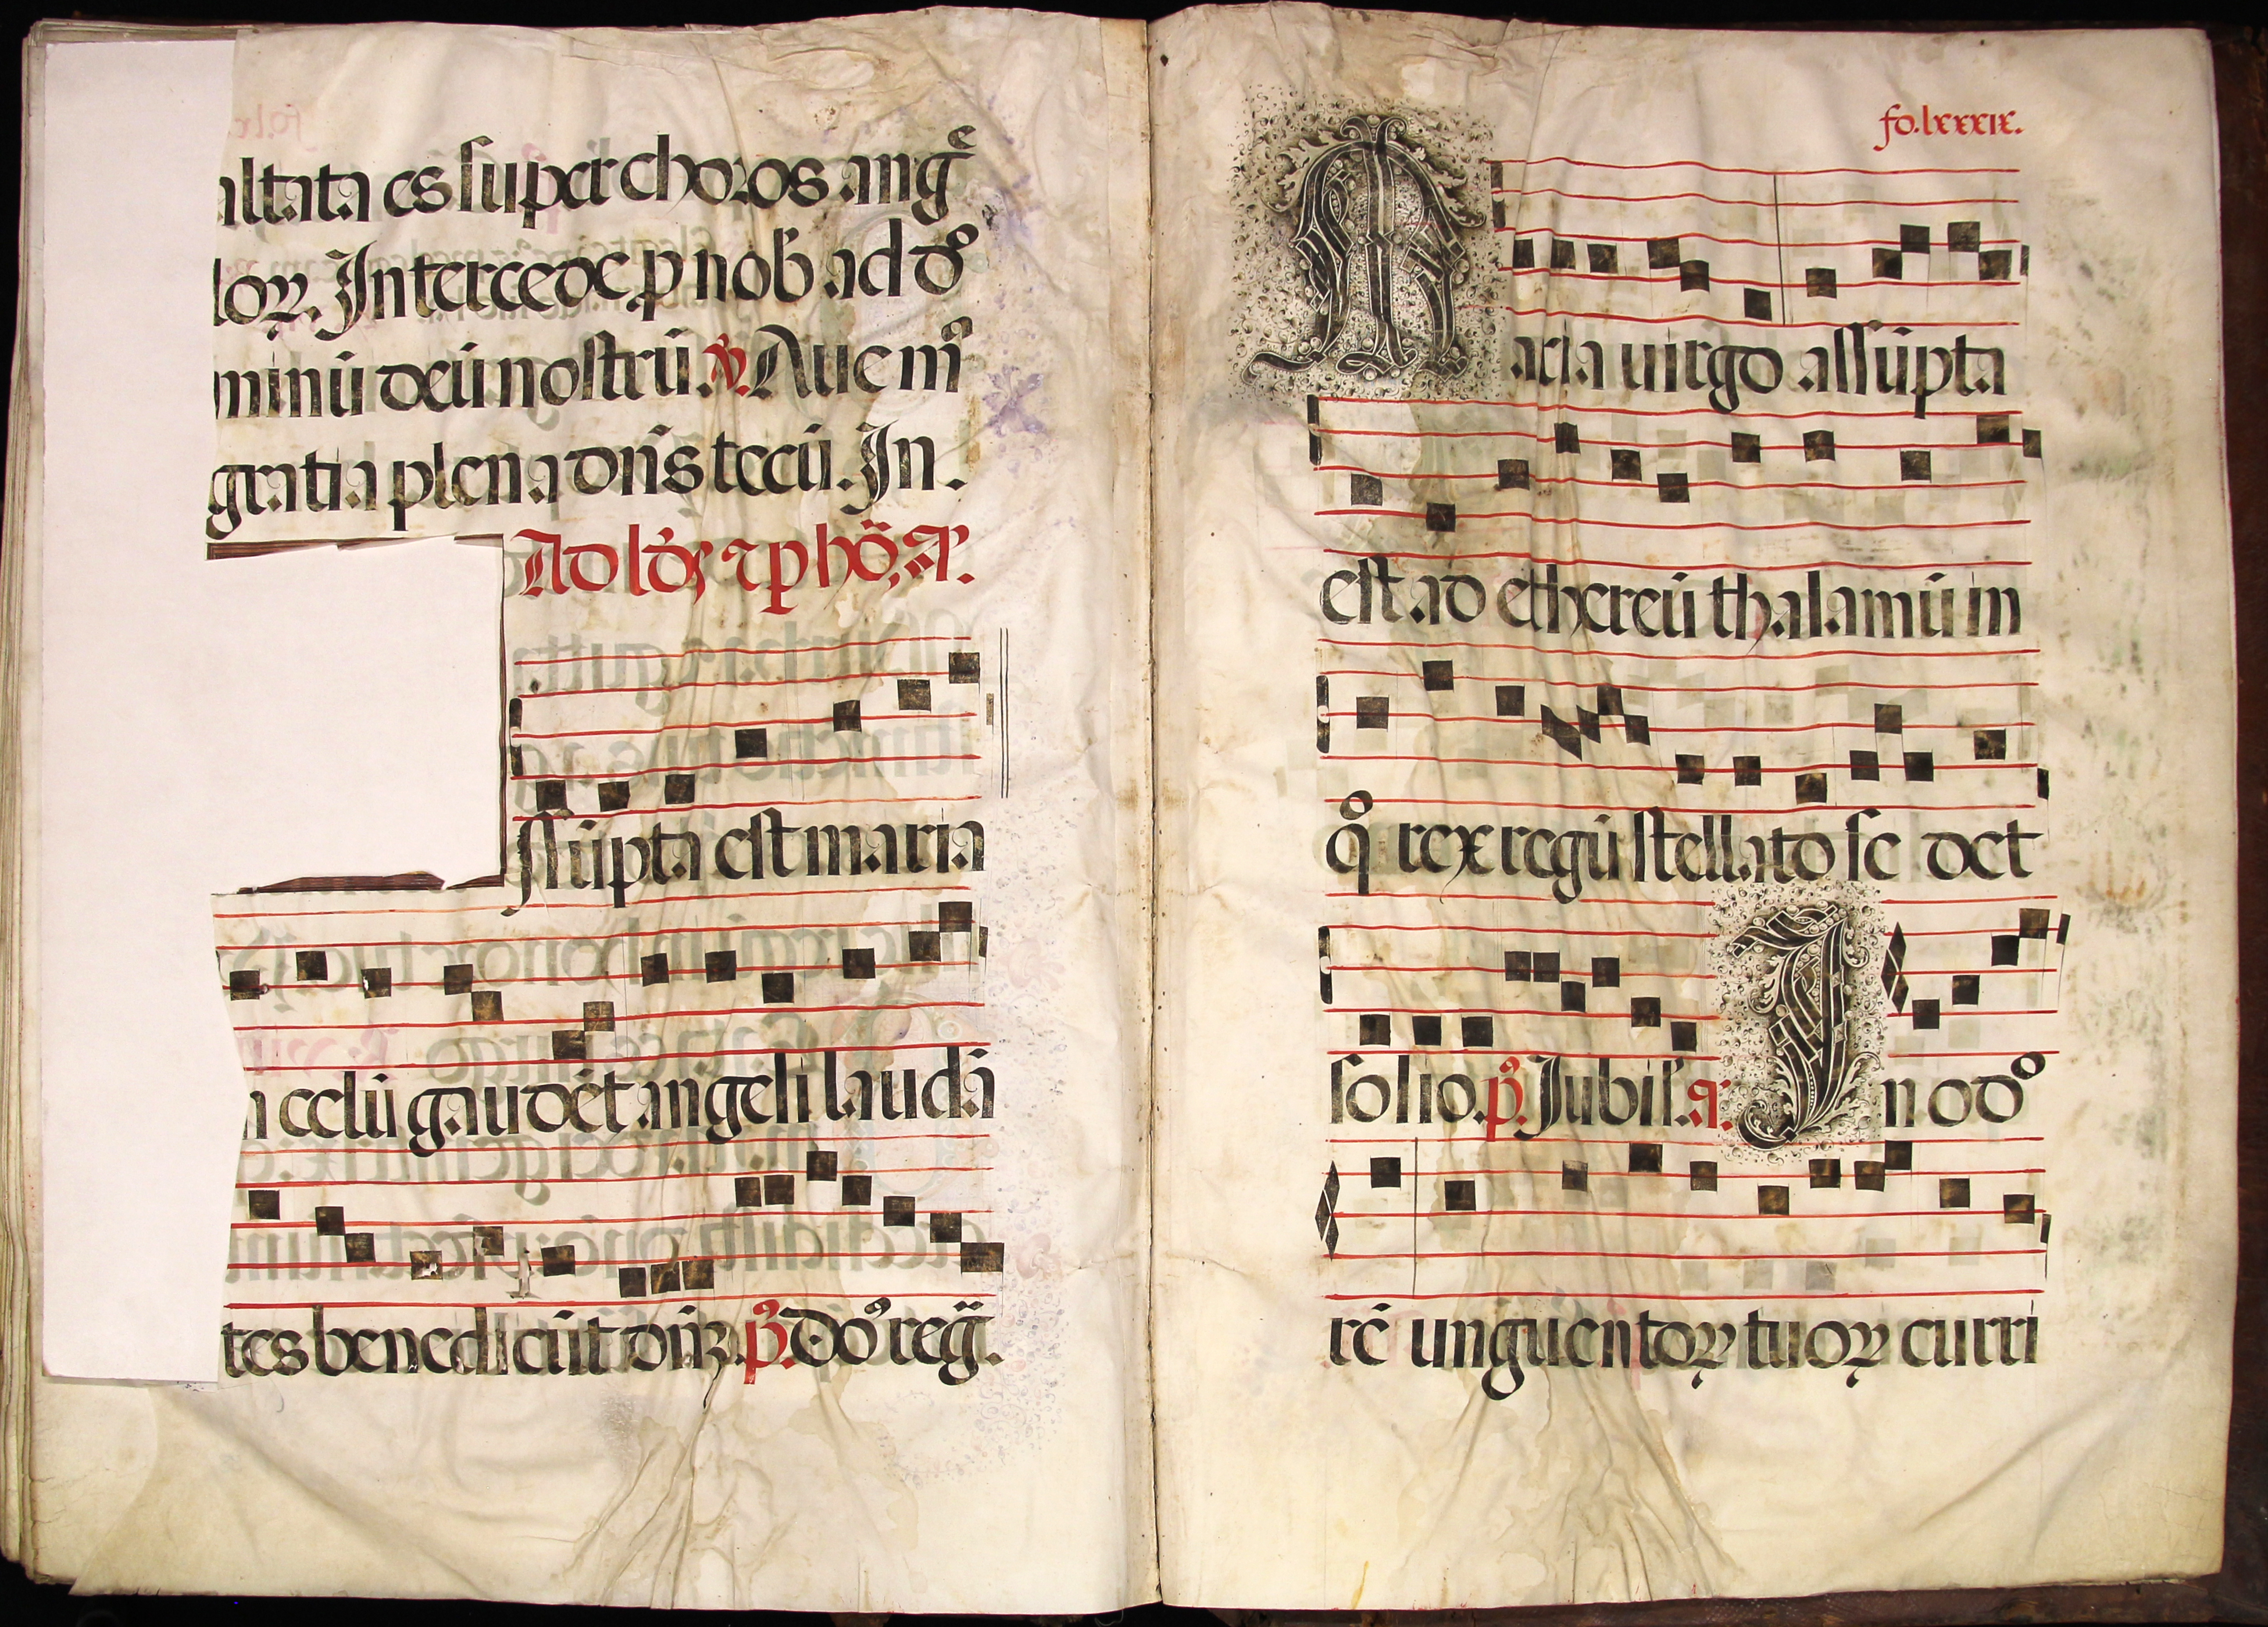 altata es super choros angͤ
loꝝ. Intercede p nob̄ ad dº
minū deū nostrū. ℣. Aue mª
gratia plena dn̄s tecū. In.
ssūpta est maria
n celū gaudēt angeli laudā
tes benedicūt dn̄ꝫ. pº. Dºº reḡ.
fo. lxxxix.
Maria uirgo assūpta
est ad ethereū thalamū in
qº rex regū stellato se det
solio. pº. Jubil. a. In odº
rē ungūentoꝝ tuoꝝ curri